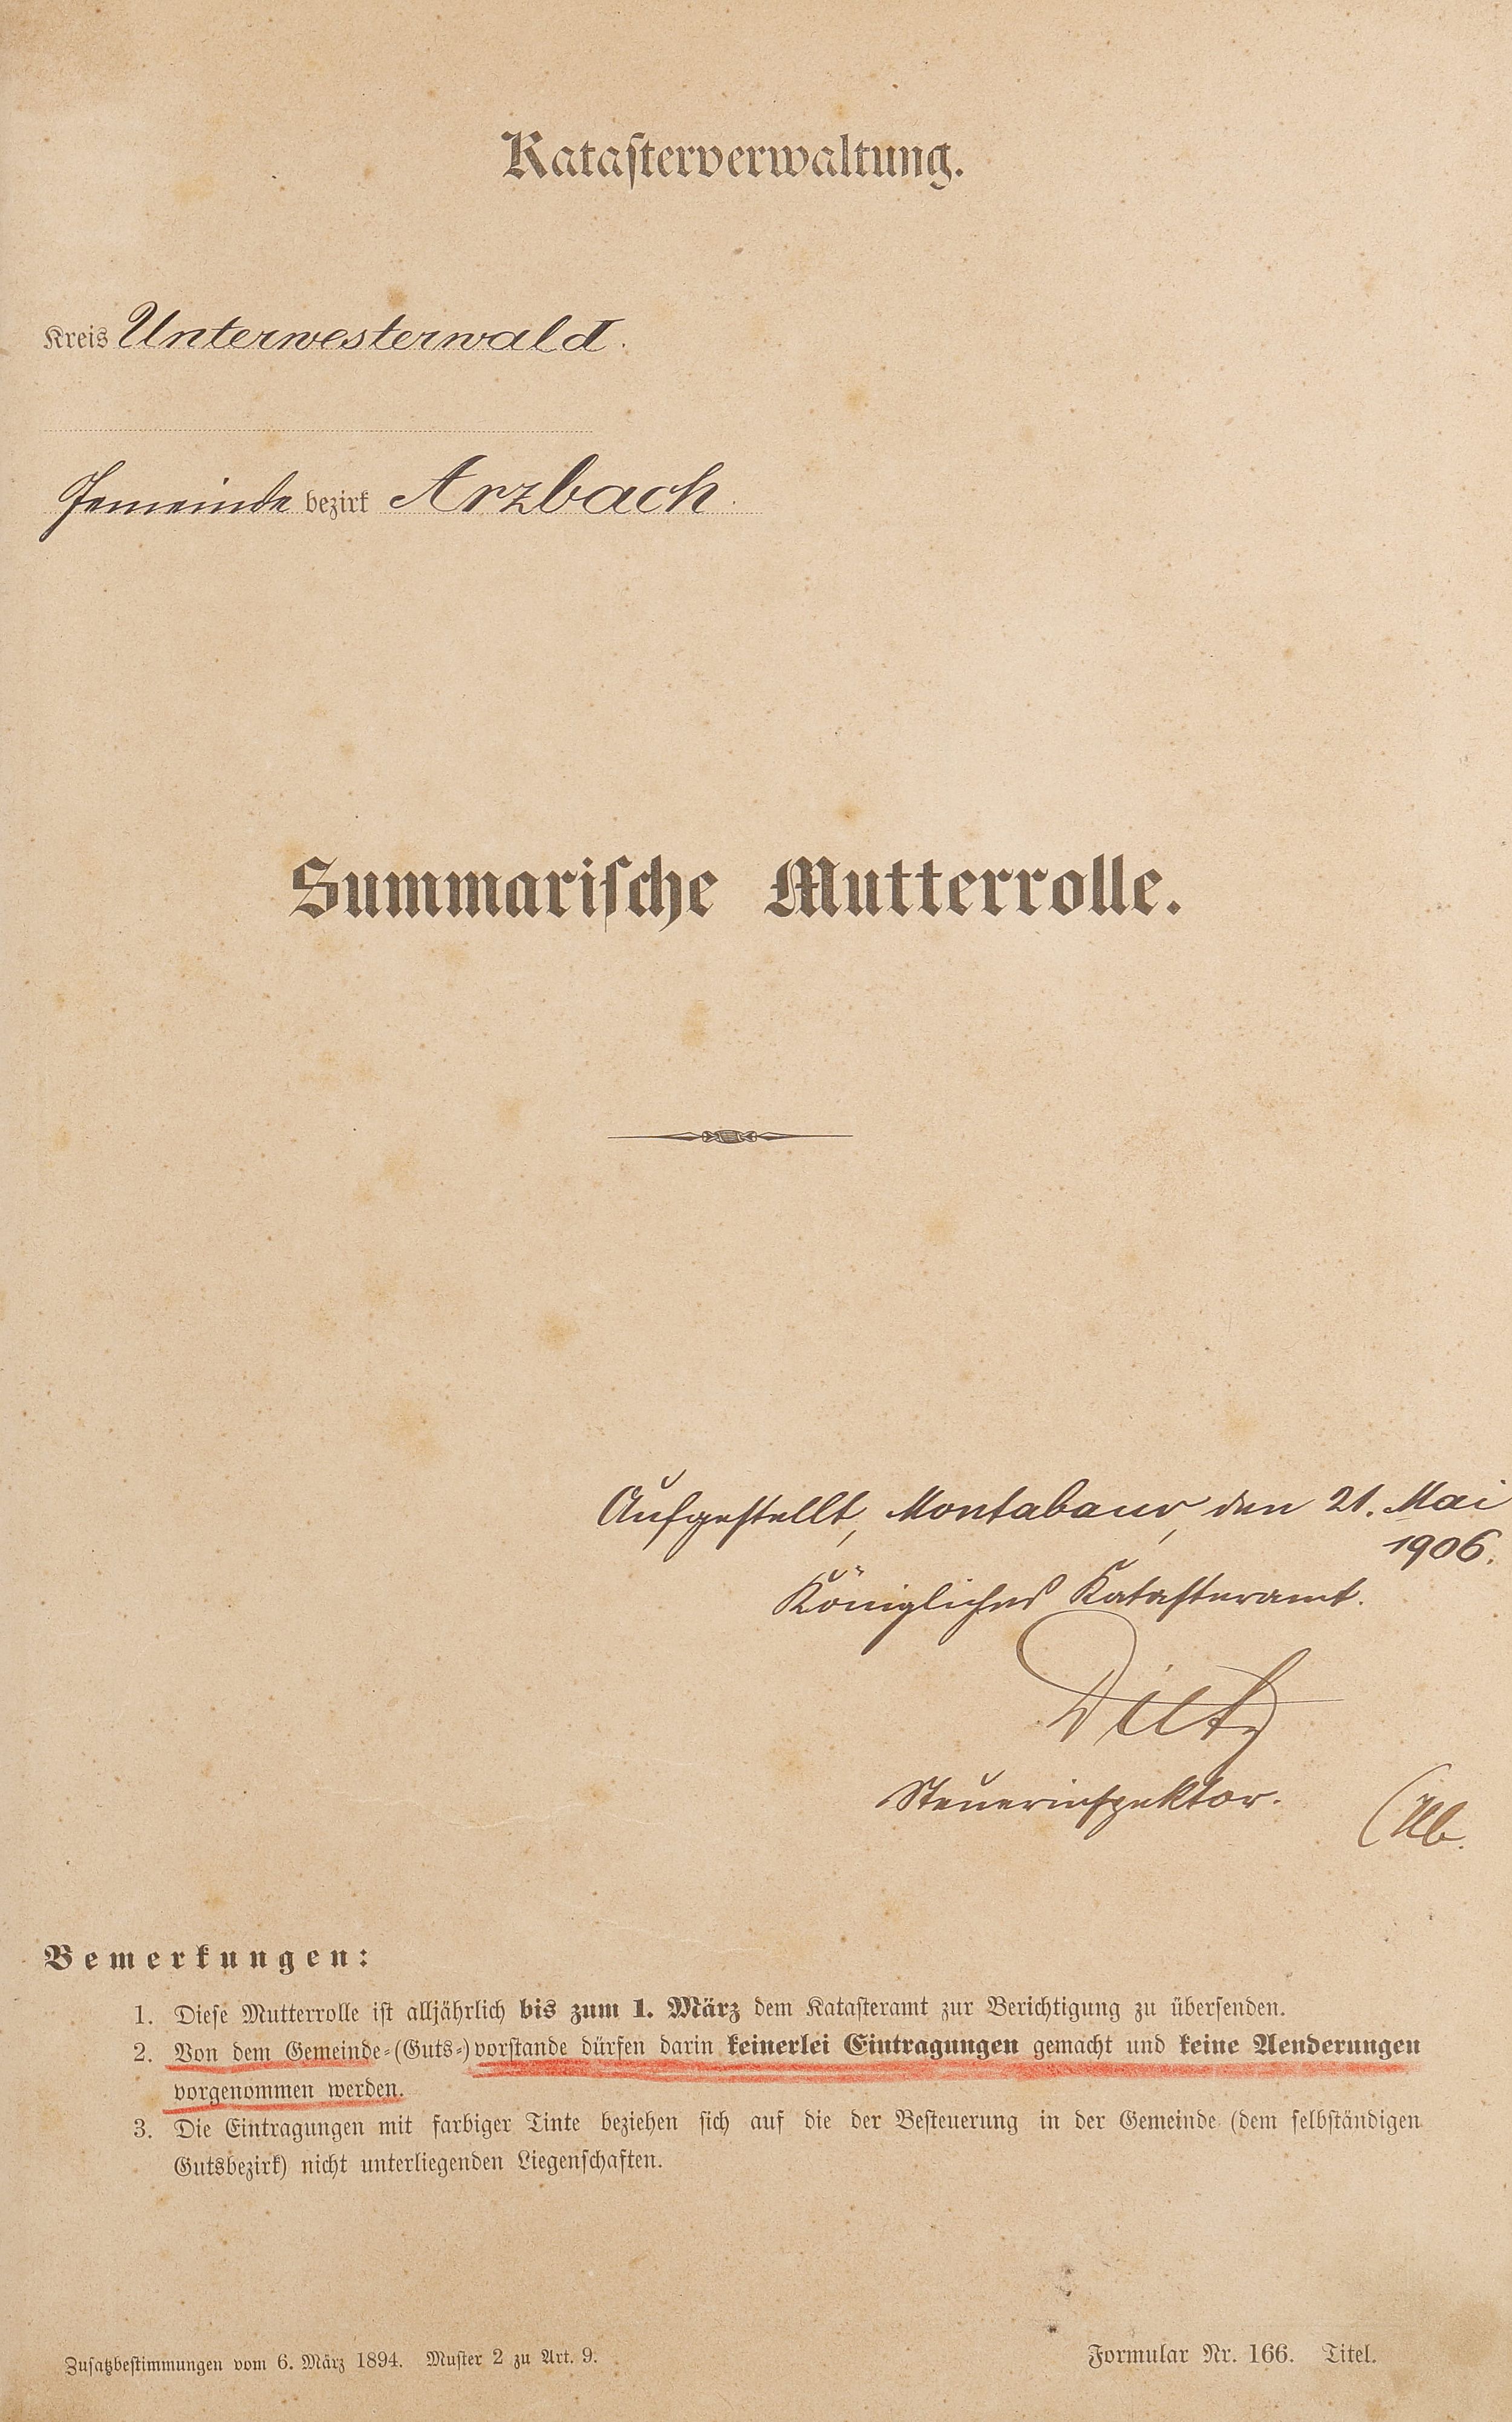 Katasterverwaltung.
Kreis Unterwesterwald.
Gemeinde bezirk Arzbach.
Summarische Mutterrolle.
Aufgestellt, Montabaur, den 21. Mai
1906.
Königliches Katasteramt.
Dietz
Steuerinspektor.
Bemerkungen:
1. Diese Mutterrolle ist alljährlich bis zum 1. März dem Katasteramt zur Berichtigung zu übersenden.
2. Von dem Gemeinde-(Guts-)vorstande dürfen darin keinerlei Eintragungen gemacht und keine Aenderungen
vorgenommen werden.
3. Die Eintragungen mit farbiger Tinte beziehen sich auf die der Besteuerung in der Gemeinde (dem selbständigen
Gutsbezirk) nicht unterliegenden Liegenschaften.
Zusatzbestimmungen vom 6. März 1894. Muster 2 zu Art. 9.
Formular Nr. 166. Titel.